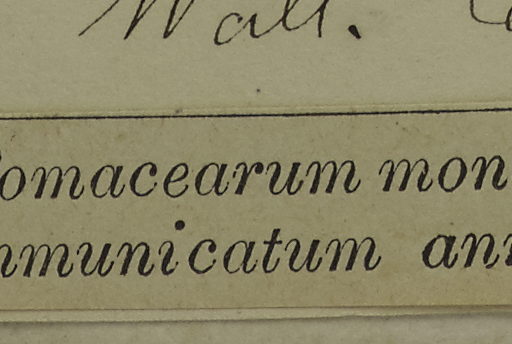 Wall.
omacearum mon
mmunicatum ann